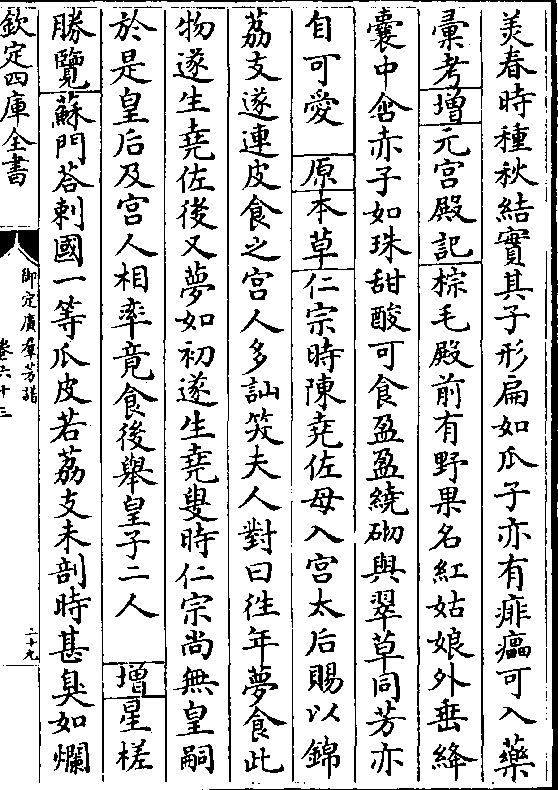 羙春時種秋結實其子形扁如瓜子亦有痱㿔可入藥
彚考增元宫殿記棕毛殿前有野果名紅姑娘外垂絳
囊中含赤子如珠甜酸可食盈盈繞砌與翠草同芳亦
自可愛原本草仁宗時陳堯佐母入宫太后賜以錦
荔支遂連皮食之宫人多訕笑夫人對曰徃年夢食此
物遂生堯佐後又夢如初遂生堯叟時仁宗尚無皇嗣
於是皇后及宫人相率竟食後舉皇子二人增星槎
勝覽蘇門荅剌國一等瓜皮若荔支未剖時甚臭如爛
欽定四庫全書
御定廣羣芳譜
卷六十三
二十九